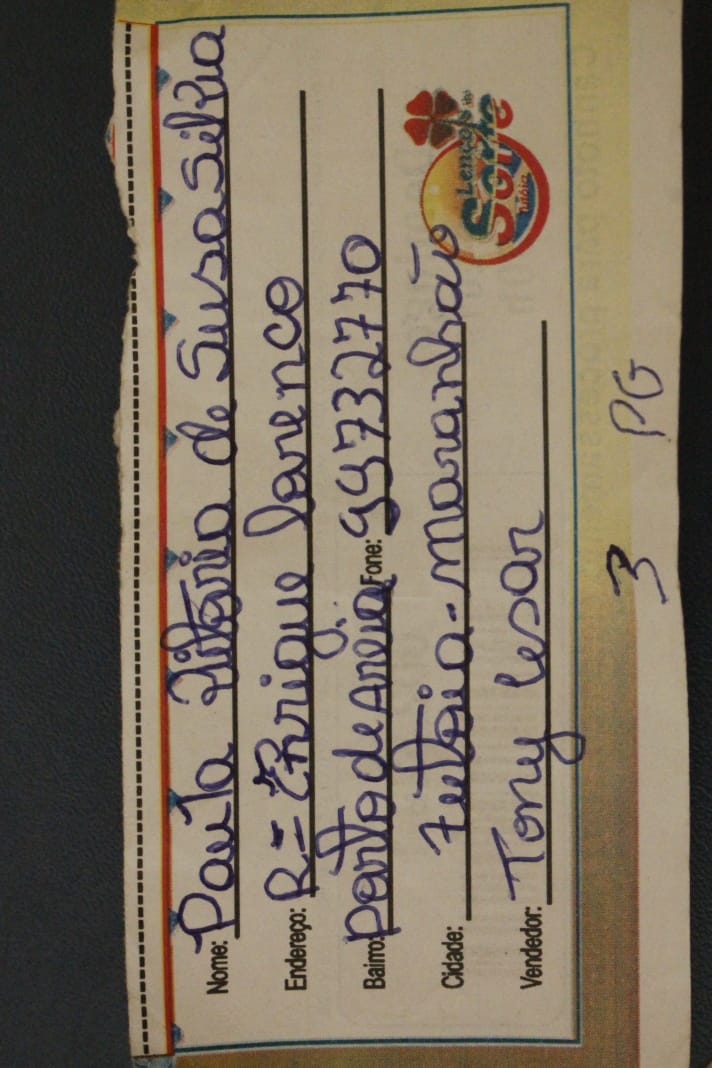 Nome: Paula Vitoria de Susa Silva
Endereço: R= Enrique Lorenco
Bairro: Ponto de Areia. Fone: 99732770
Cidade: Tutoia - maranhão
Vendedor: Tony Cesar
Lençóis da
Sorte
3 PG